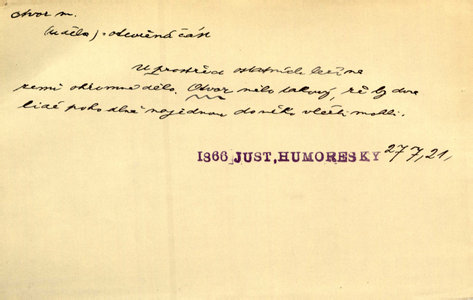 otvor m.
(u děla) = otevřená část
Uprostřed ostatních leží na
zemi ohromné dělo. Otvor mělo takový, že by dva
lidé pohodlně najednou do něho vlézti mohli.
1866 JUST, HUMORESKY 277, 21,